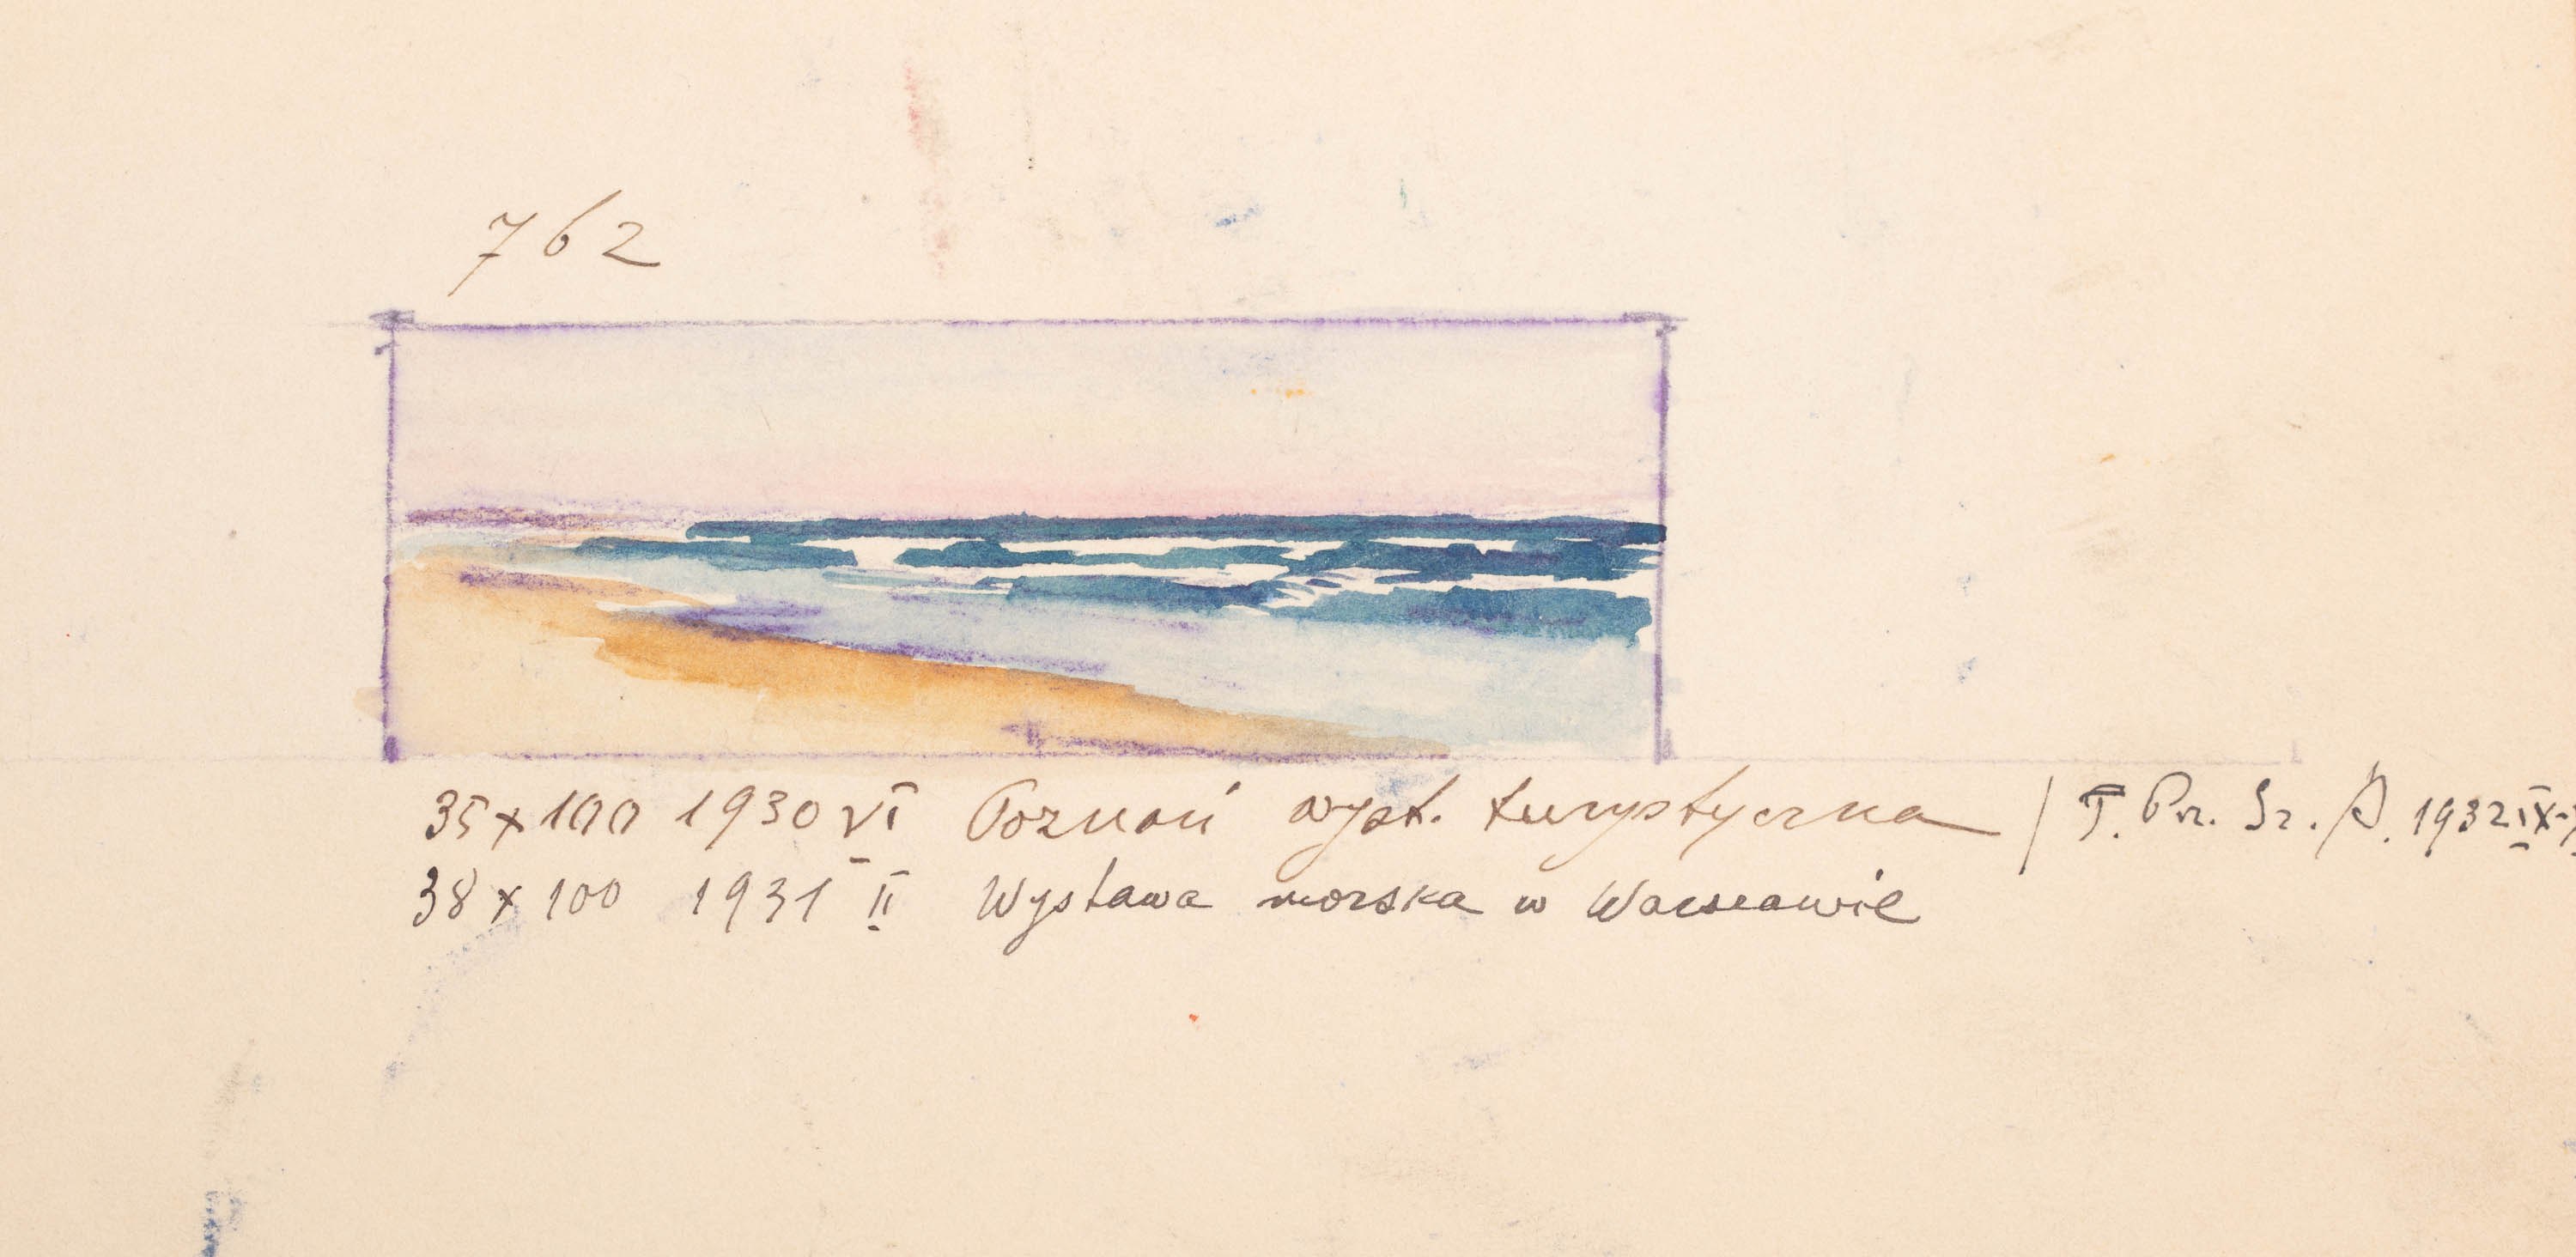 762
35 x 100 1930 VI Poznań wyst. turystyczna / T. Prz. Sz. P. 1932 IX-
38 x 100 1931 II Wystawa morska w Warszawie